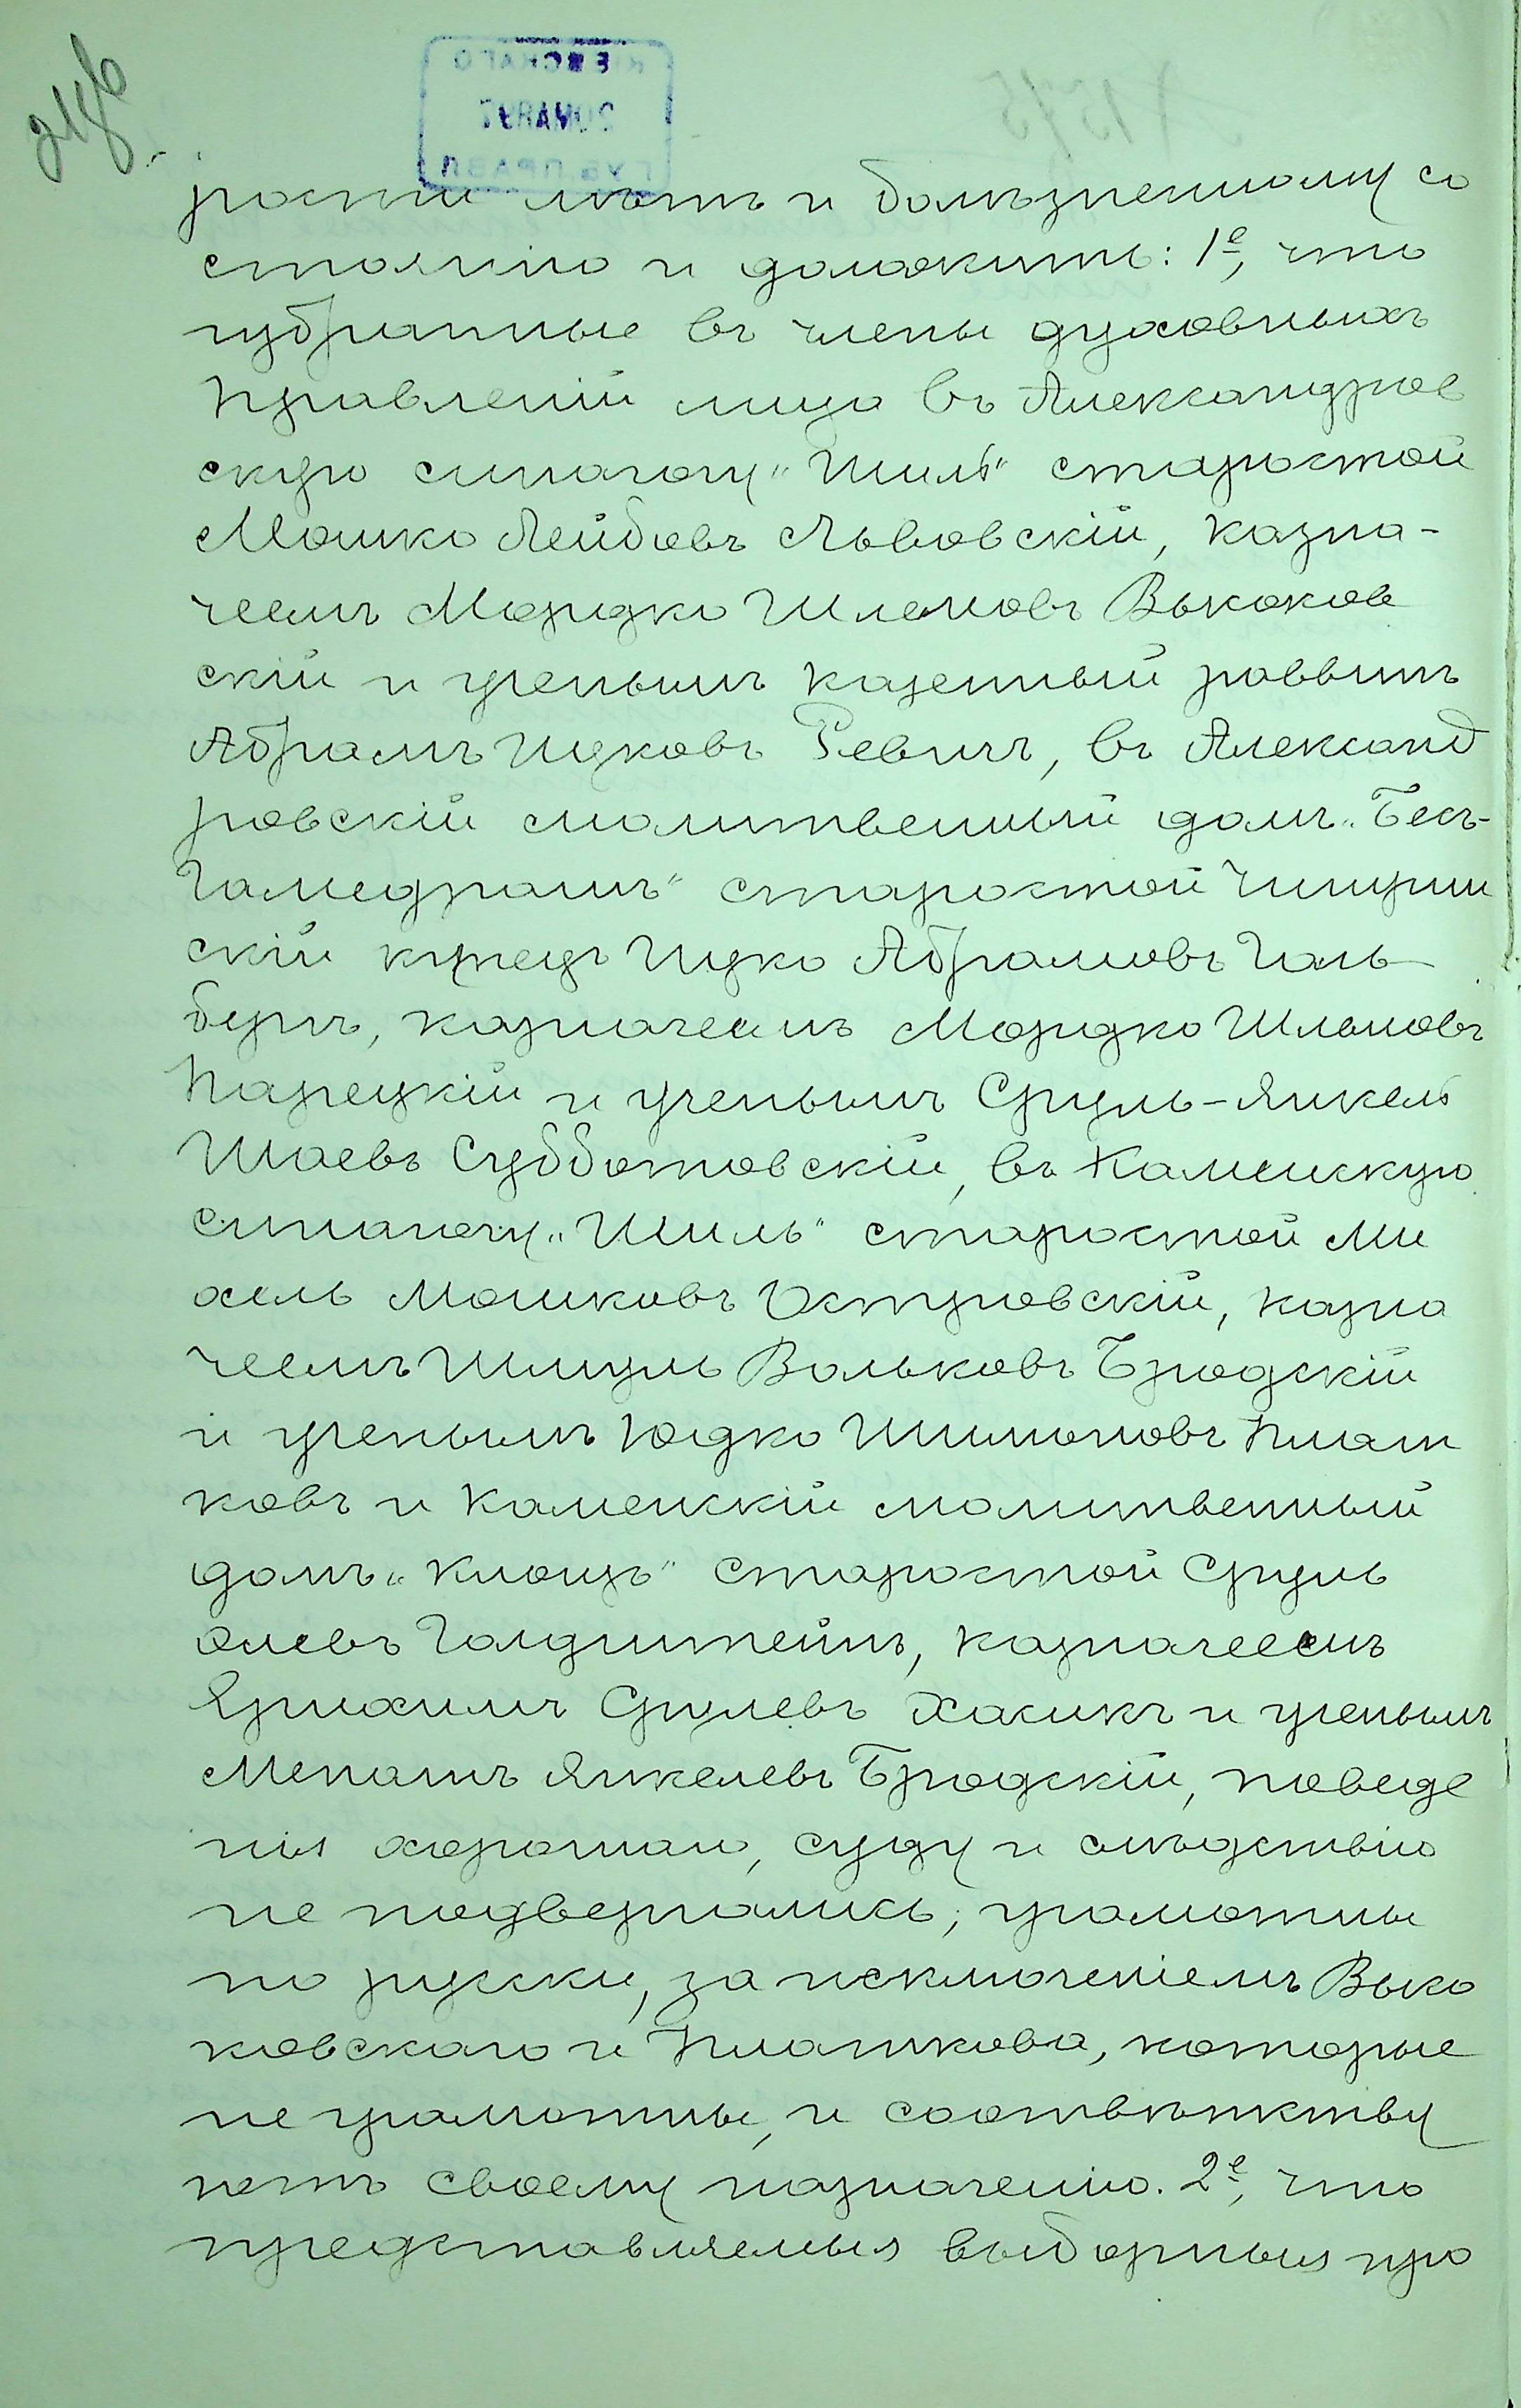 рости лѣтъ и болѣзненному со
стоянію и доложить: 1е, что
избранные въ члены духовныхъ
правленій лица въ Александров
скую синагогу „Шиль“ старостой
Мошко Лейбовъ Львовскій, казна-
чеемъ Мордко Шлемовъ Высоков
скій и ученымъ казенный раввинъ
Абрамъ Ицковъ Ревичъ, въ Александ
ровскій молитвенный домъ „Бесъ-
Гамедрашъ“ старостой Чигирин
скій купецъ Ицко Абрамовъ Галь-
буръ, казначеемъ Мордко Шлемовъ
Парецкій и ученымъ Сруль-Янкель
Шаевъ Субботовскій, въ Каменскую
синагогу „Шиль“ старостой Ми
хель Мошковъ Островскій, казна
чеемъ Шмуль Вольковъ Бродскій
и ученымъ Юдко Шимоновъ Плат
ковъ и Каменскій молитвенный
домъ „Клоизъ“ старостой Сруль
Голдштейнъ, казначеемъ
Срулевъ Хасикъ и ученымъ
Менашъ Янкелевъ Бродскій, поведе
нія хорошаго, суду и слѣдствію
не подвергались, грамотны
по русски, за исключеніемъ Высо
ковскаго и Платкова, которые
не грамотны, и соотвѣтству
ютъ своему назначенію. 2е, что
представляемыя выборныя про